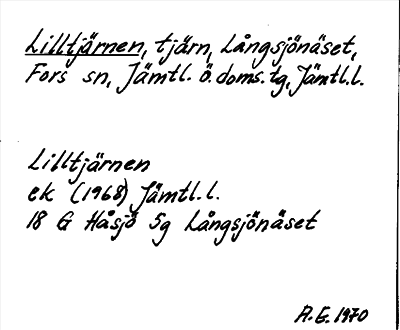 Lilltjärnen, tjärn, Långsjönäset,
Fors sn, Jämtl. ö. doms. tg, Jämtl.l.
Lilltjärnen
ek (1968) Jämtl.l.
18 G Håsjö 5g Långsjönäset
A.E. 1970